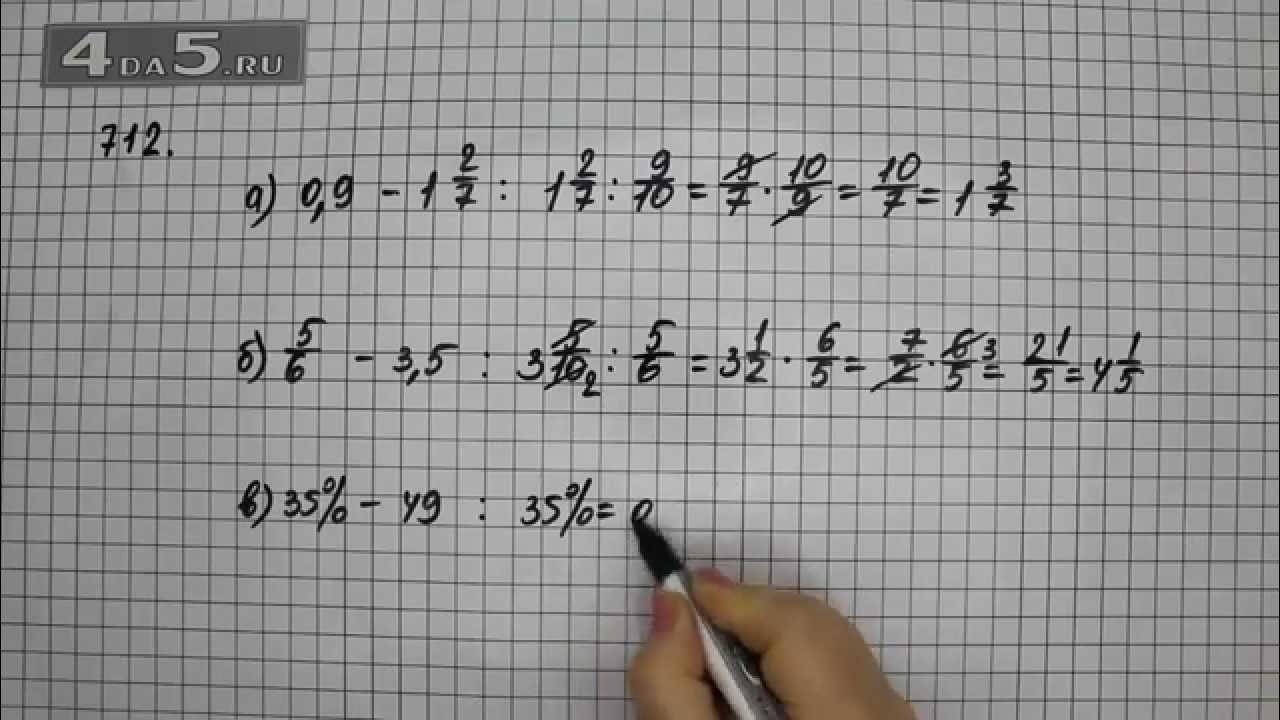 4DA5.RU
712.
а) 0,9 - 1 2/7 : 1 2/7 : 9/10 = 9/7 · 10/9 = 10/7 = 1 3/7
б) 5/6 - 3,5 : 3 5/10 2 : 5/6 = 3 1/2 · 6/5 = 7/2 · 6/5 3 = 21/5 = 4 1/5
в) 35% - 49 : 35% = 0